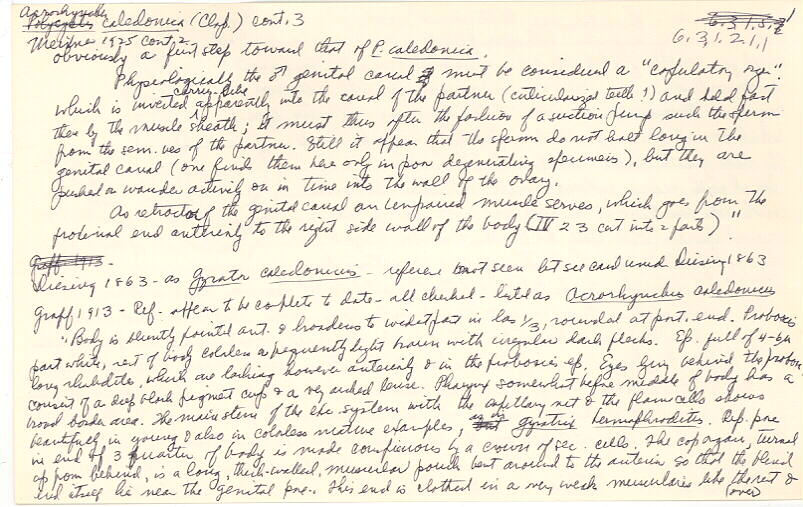 Acrorhynchus
Polycystis caledonica (Clap.) cont. 3
6.3.1.5.2
Meixner 1925 cont. 2
6.3.1.21.1
obviously a first step toward that of P. caledonica.
Physiologically the ♂ genital canal must be considered a "copulatory organ"
which is inverted apparently into the canal of the partner (cuticularized teeth!) and held fast
there by the muscle sheath; it must thus after the fashion of a suction pump suck the sperm
from the sem. ves of the partner. Still it appear that the sperm do not last long in the
genital canal (one finds them here only in poor degenerating specimens), but they are
pushed or wander actively on in time into the wall of the ovary.
As retractor of the genital canal an unpaired muscle serves, which goes from the
proximal end anteriorly to the right side wall of the body (IV 23 cut into 2 parts)"
Graff 1913 -
Diesing 1863 - as Gyrator caledonicus - reference not seen but see card under Diesing 1863
Graff 1913 - Ref. appear to be complete to date - all checked - listed as Acrorhynchus caledonicus
"Body is slightly pointed ant. & broadens to widest part in last 1/3, rounded at post. end. Proboscis
part white, rest of body colorless or frequently light brown with irregular dark flecks. Ep. full of 4-6μ
long rhabdites, which are lacking however anteriorly & in the proboscis ep. Eyes lying behind the probos.
consist of a deep black pigment cup & a very arched lense. Pharynx somewhat before middle of body has a
broad border area. The main stems of the exc. system with the capillary net & the flame cells shows
beautifully in young & also in colorless mature examples, as in Gyratrix hermaphroditus. Rep. pore
in end of 3 quarter of body is made conspicuous by a crown of sec. cells. The cop organ, turned
up from behind, is a long, thick-walled, muscular pouch bent around to the anterior so that the blind
end itself lie near the genital pore. This end is clothed in a very weak muscularis like the rest &
(over)